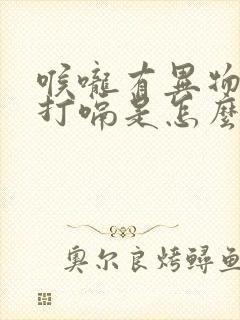 喉嚨有異物
打嗝是怎麼
奧尔良烤鱘鱼